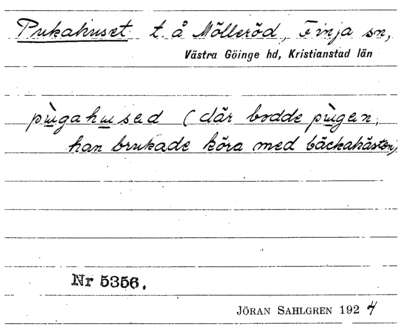 Pukahuset t. å Mölleröd, Finja sn,
Västra Göinge hd, Kristianstad län
pùgahused (där bodde pùgen,
han brukade köra med bäckahästen)
Nr 5356.
JÖRAN SAHLGREN 1924